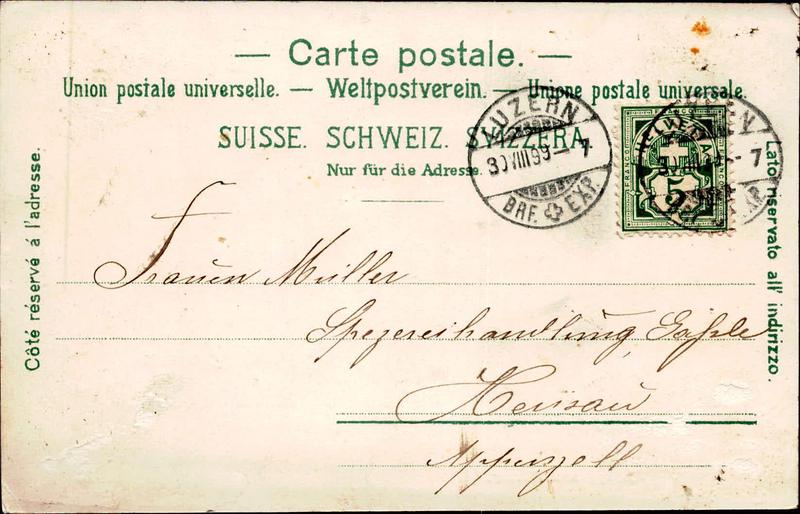 — Carte postale. —
Union postale universelle. — Weltpostverein. — Unione postale universale.
SUISSE. SCHWEIZ. SVIZZERA.
Nur für die Adresse.
Côté réservé à l'adresse.
Lato riservato all' indirizzo.
LUZERN
30 VIII 99 – 7
BRF. EXP.
FRANCO
5
Frauen Müller
Spezereihandlung,
Herisau
Appenzell